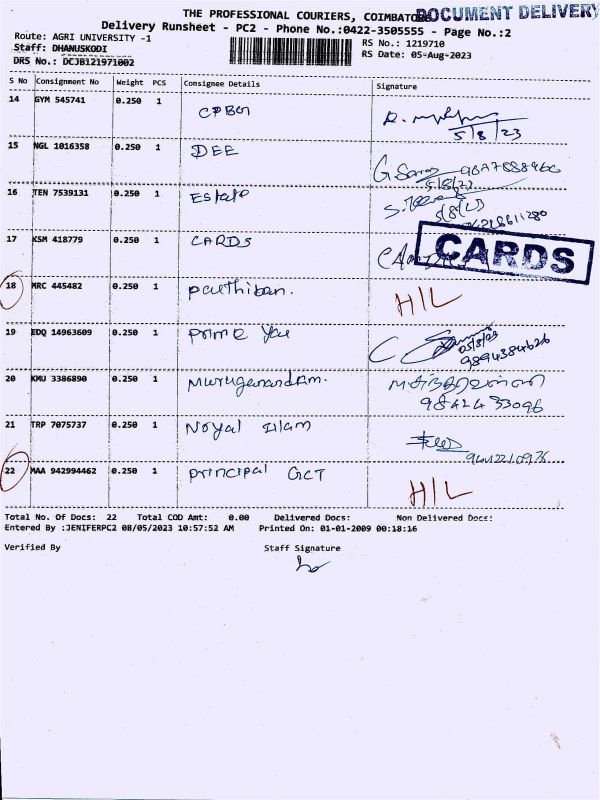 THE PROFESSIONAL COURIERS, COIMBATORE
DOCUMENT DELIVERY
Delivery Runsheet - PC2 - Phone No.:0422-3505555 - Page No.:2
Route: AGRI UNIVERSITY -1
RS No.: 1219710
Staff: DHANUSKODI
RS Date: 05-Aug-2023
DRS No.: DCJB121971002
S No Consignment No Weight PCS Consignee Details Signature
14 GYM 545741 0.250 1 CPBG
5/8/23
15 NGL 1016358 0.250 1 DEE
5/8/23
16 TEN 7539131 0.250 1 Estate
5/8/23
17 KSM 418779 0.250 1 CARDS
CARDS
18 MRC 445482 0.250 1 Parthiban. H/L
19 EDQ 14963609 0.250 1 Prime You
05/8/23
9894384626
20 KMU 3386890 0.250 1 Muruganandam.
9842433096
21 TRP 7075737 0.250 1 Noyal Illam
22 MAA 942994462 0.250 1 Principal GCT H/L
Total No. Of Docs: 22 Total COD Amt: 0.00 Delivered Docs: Non Delivered Docs:
Entered By :JENIFERPC2 08/05/2023 10:57:52 AM Printed On: 01-01-2009 00:18:16
Verified By Staff Signature